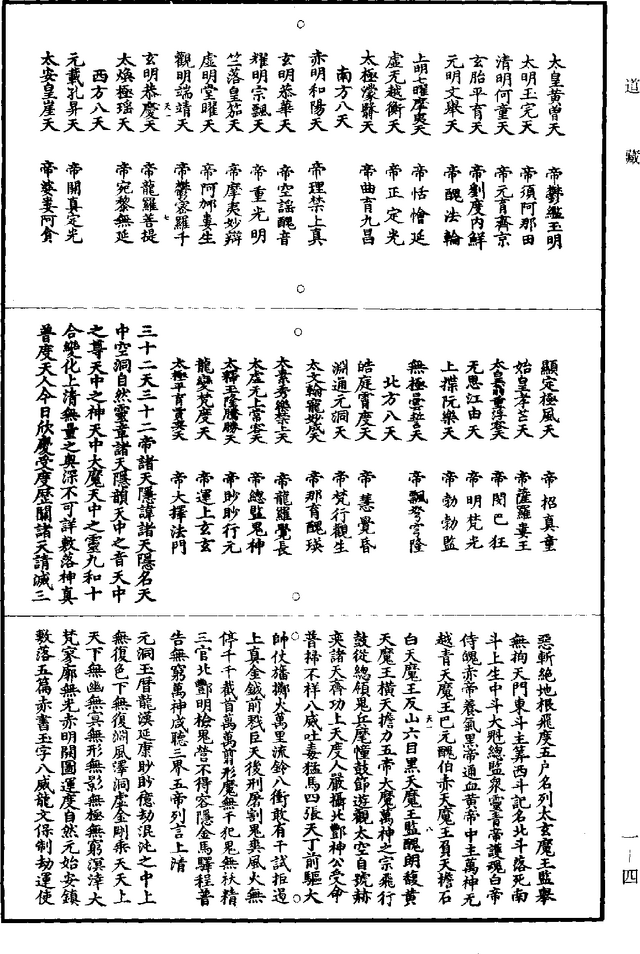 道藏
太皇黃曾天　帝鬱鑑玉明
太明玉完天　帝須阿那田
清明何童天　帝元育齊京
玄胎平育天　帝劉度內鮮
元明文舉天　帝醜法輪
上明七曜摩夷天　帝恬憎延
虛无越衡天　帝正定光
太極濛翳天　帝曲育九昌
南方八天
赤明和陽天　帝理禁上真
玄明恭華天　帝空謠醜音
耀明宗飄天　帝重光明
竺落皇笳天　帝摩夷妙辯
虛明堂曜天　帝阿加婁生
觀明端靖天　帝鬱密羅千
天一　七
玄明恭慶天　帝龍羅菩提
太煥極瑶天　帝宛黎無延
西方八天
元載孔昇天　帝開真定光
太安皇崖天　帝婆婁阿貪
顯定極風天　帝招真童
始皇孝芒天　帝薩羅婁王
太皇翁重浮容天　帝閔巴狂
无思江由天　帝明梵光
上揲阮樂天　帝勃勃監
無極曇誓天　帝飄弩穹隆
北方八天
皓庭霄度天　帝慧覺昏
淵通元洞天　帝梵行觀生
太文翰寵妙成天　帝那育醜瑛
太素秀樂禁上天　帝龍羅覺長
太虛无上常容天　帝總監鬼神
太釋玉隆騰勝天　帝眇眇行元
龍變梵度天　帝運上玄玄
太極平育賈奕天　帝大擇法門
三十二天三十二帝諸天隱諱諸天隱名天
中空洞自然靈章諸天隱韻天中之音天中
之尊天中之神天中大魔天中之靈九和十
合變化上清無量之奥深不可詳敷落神真
普度天人今日欣慶受度歷關諸天請滅三
惡斬絕地根飛度五戶名列太玄魔王監舉
無拘天門東斗主筭西斗記名北斗落死南
斗上生中斗大魁總監衆靈青帝護魂白帝
侍魄赤帝養氣黑帝通血黃帝中主萬神无
越青天魔王巴元醜伯赤天魔王負天擔石
天一　八
白天魔王反山六目黑天魔王監醜朗馥黃
天魔王横天擔力五帝大魔萬神之宗飛行
鼓從總領鬼兵麾幢鼓節遊觀太空自號赫
奕諸天齊功上天度人嚴攝北酆神公受命
普掃不祥八威吐毒猛馬四張天丁前驅大
帥仗旛擲火萬里流鈴八衝敢有干試拒遏
上真金鉞前戮巨天後刑屠割鬼爽風火無
停千千截首萬萬剪形魔無干犯鬼無袄精
三官北酆明檢鬼營不得容隱金馬驛程普
告無窮萬神咸聽三界五帝列言上清
元洞玉曆龍漢延康眇眇億劫混沌之中上
無復色下無復淵風澤洞虛金剛乘天天上
天下無幽無冥無形無影無極無窮溟涬大
梵寥廓無光赤明開圖運度自然元始安鎮
敷落五篇赤書玉字八威龍文保制劫運使
一—四